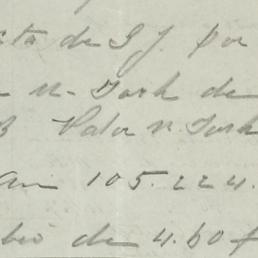 de S J. por
N. York de
Valor N. York
105.224.
de 4.60 f